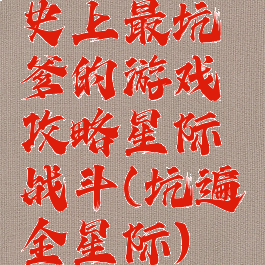 史上最坑
爹的游戏
攻略星际
战斗(坑遍
全星际)